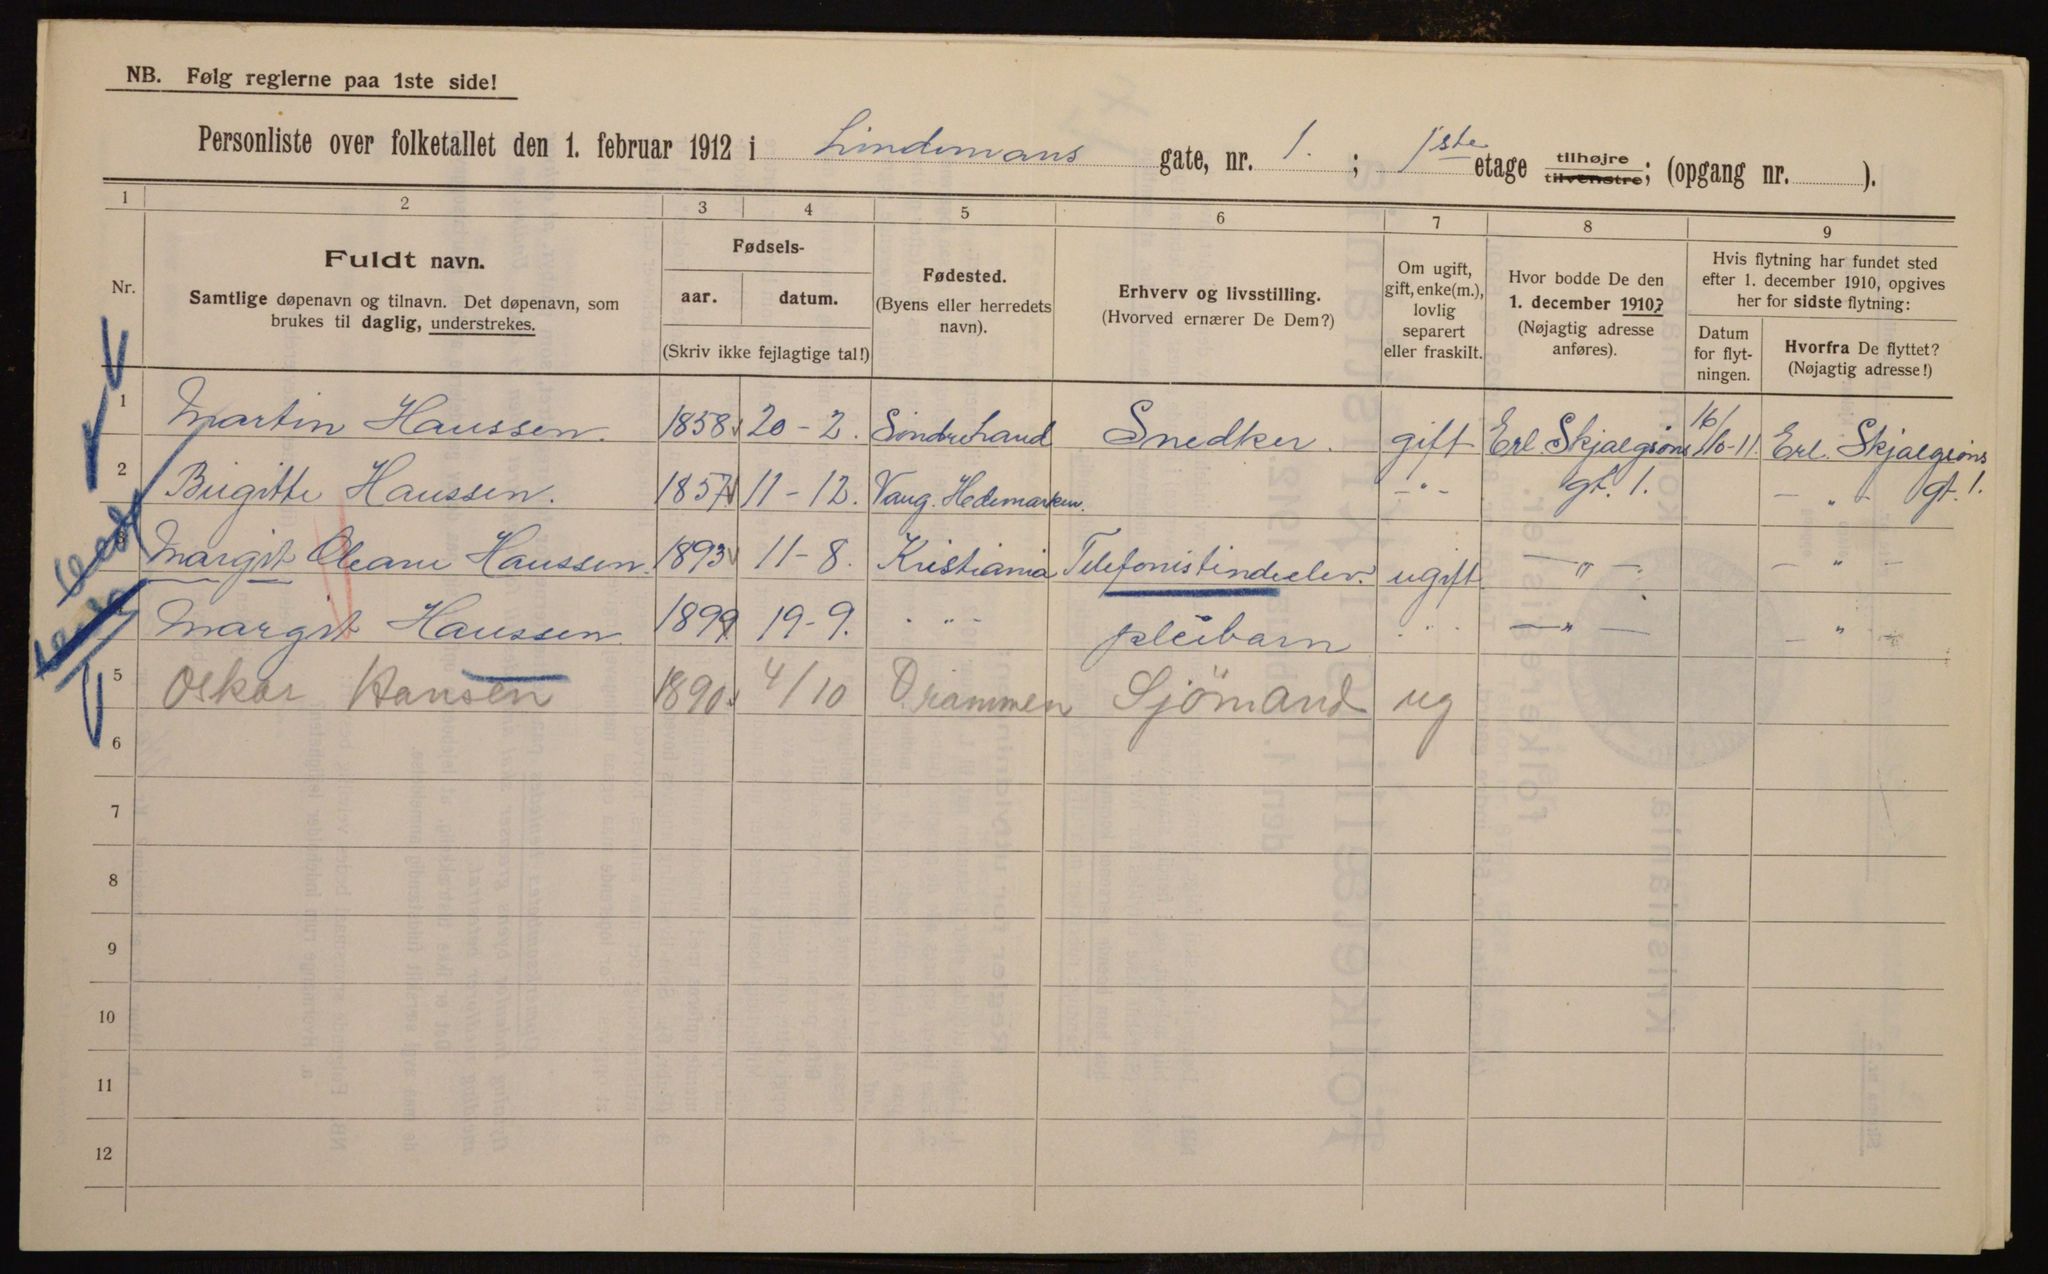 NB. Følg reglerne paa 1ste side!
Personliste over folketallet den 1. februar 1912 i Lindemans gate, nr. 1. ; 1ste etage tilhøjre tilvenstre; (opgang nr. ).
1 2 3 4 5 6 7 8 9
Nr.
Fuldt navn.
Samtlige døpenavn og tilnavn. Det døpenavn, som
brukes til daglig, understrekes.
Fødsels-
aar. datum.
(Skriv ikke fejlagtige tal!)
Fødested.
(Byens eller herredets
navn).
Erhverv og livsstilling.
(Hvorved ernærer De Dem?)
Om ugift,
gift, enke(m.),
lovlig
separert
eller fraskilt.
Hvor bodde De den
1. december 1910?
(Nøjagtig adresse
anføres).
Hvis flytning har fundet sted
efter 1. december 1910, opgives
her for sidste flytning:
Datum
for flyt-
ningen.
Hvorfra De flyttet?
(Nøjagtig adresse!)
1 Martin Hanssen. 1858 20-2. Søndre Land Snedker. gift Erl. Skjalgsøns 16/10-11. Erl. Skjalgsøns
2 Birgitte Hanssen. 1857 11-12. Vang. Hedemarken. -"- gt. 1. -"- gt. 1.
3 Margit Oleane Hanssen. 1893 11-8. Kristiania Telefonistindeelev. ugift -"- -"-
Margit Hanssen 1899 19-9. -"- pleibarn -"- -"- -"-
5 Oskar Hansen 1890 4/10 Drammen Sjömand ug
6
7
8
9
10
11
12